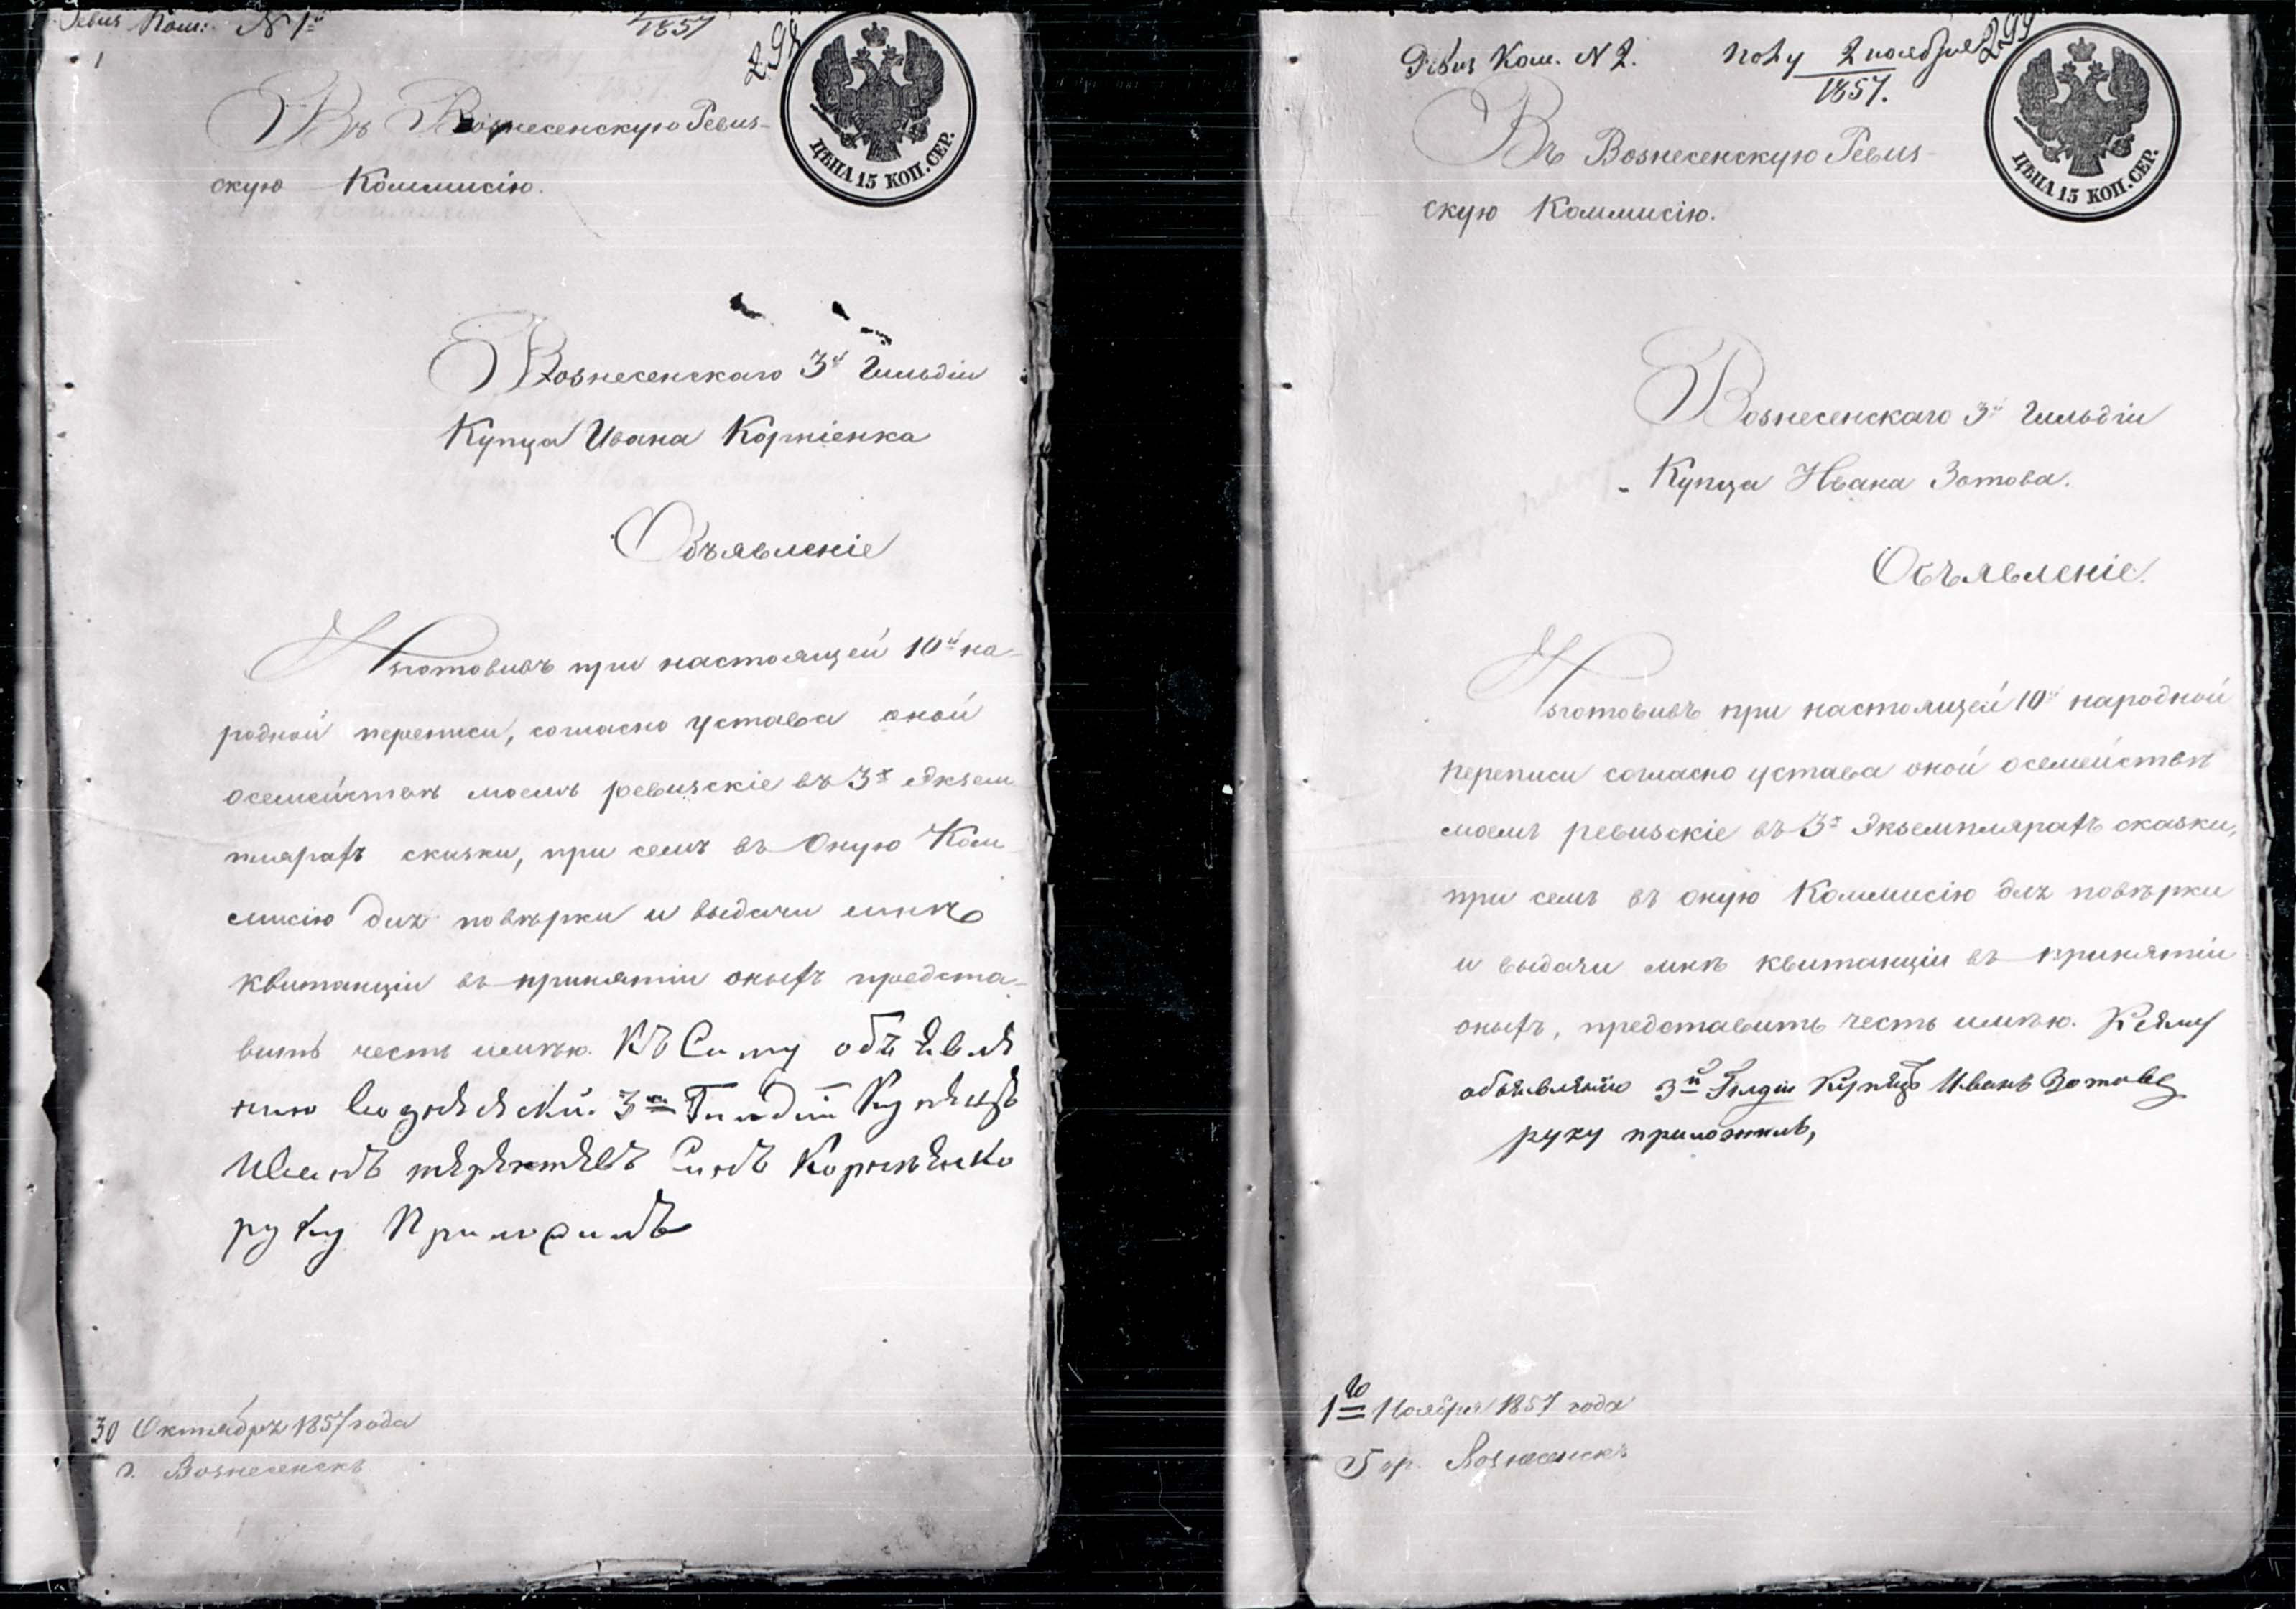 Ревиз Ком: N 1й
1857
298
1
ЦѢНА 15 КОП. СЕР.
Въ Вознесенскую Ревиз-
скую Коммисію.
Вознесенскаго 3й Гильдіи
Купца Ивана Корніенка
Объявленіе
Изготовивъ при настоящей 10й на-
родной переписи, согласно устава оной
осемействѣ моемъ ревизскіе въ 3х Экзем
плярахъ сказки, при семъ въ Оную Ком
мисію для повѣрки и выдачи мнѣ
квитанціи въ принятіи оныхъ предста-
вить честь имѣю. Къ Симу объявле
нию 3й Гилдии Купецъ
Иванъ Синъ Корнѣенко
руку Приложилъ
30 Октября 1857 года
г. Вознесенскъ
Ревиз Ком. N 2. 2 ноября
1857.
299
ЦѢНА 15 КОП. СЕР.
Въ Вознесенскую Ревиз-
скую Коммисію.
Вознесенскаго 3й Гильдіи
Купца Ивана Зотова.
Объявленіе.
Изготовивъ при настоящей 10й народной
переписи согласно устава оной осемействѣ
моемъ ревизскіе въ 3х Экземплярахъ сказки,
при семъ въ оную Коммисію для повѣрки
и выдачи мнѣ квитанціи въ принятіи
оныхъ, представить честь имѣю. К сему
объявленію 3й Гилдіи Купецъ Иванъ Зотовъ
руку приложилъ,
1го Ноября 1857 года
Гор. Вознесенскъ